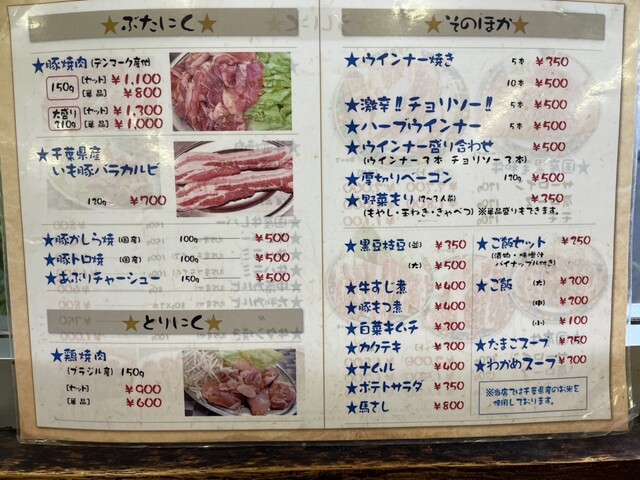 ★ぶたにく★
★豚焼肉(デンマーク産他)
150g
[セット] ￥1,100
[単品] ￥800
大盛り210g
[セット] ￥1,300
[単品] ￥1,000
★千葉県産
いも豚バラカルビ
120g ￥700
★豚かしら焼(国産) 100g ￥500
★豚トロ焼(国産) 100g ￥500
★あぶりチャーシュー 150g ￥500
★とりにく★
★鶏焼肉
(ブラジル産) 150g
[セット] ￥900
[単品] ￥600
★そのほか★
★ウインナー焼き 5本 ￥350
10本 ￥500
★激辛!!チョリソー!! 5本 ￥500
★ハーブウインナー 5本 ￥500
★ウインナー盛り合わせ ￥500
(ウインナー3本 チョリソー3本)
★厚切りベーコン 120g ￥500
★野菜もり(2～3人前) ￥350
(もやし・玉ねぎ・きゃべつ) ※単品盛りもできます。
★黒豆枝豆(並) ￥350
(大) ￥500
★牛すじ煮 ￥400
★豚もつ煮 ￥400
★白菜キムチ ￥300
★カクテキ ￥300
★ナムル ￥400
★ポテトサラダ ￥350
★馬さし ￥800
★ご飯セット ￥350
(漬物・味噌汁
パイナップル付き)
★ご飯 (大) ￥300
(中) ￥200
(小) ￥100
★たまごスープ ￥350
★わかめスープ ￥300
※当店では千葉県産のお米を
使用しております。